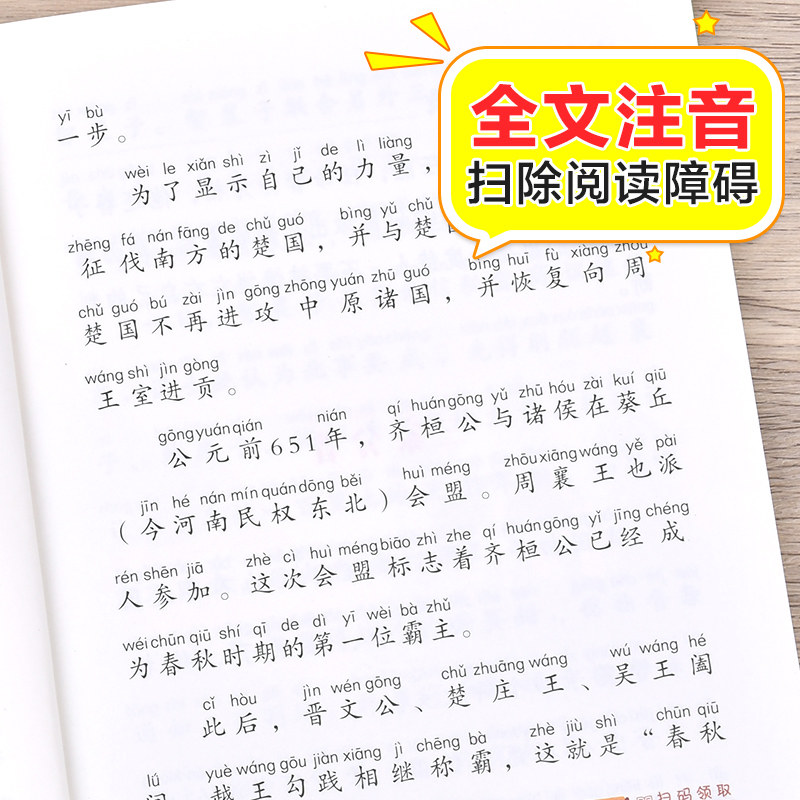 全文注音
扫除阅读障碍
yī bù
一步。
wèi le xiǎn shì zì jǐ de lì liàng
为了显示自己的力量，
zhēng fá nán fāng de chǔ guó bìng yǔ chǔ
征伐南方的楚国，并与楚
chǔ guó bú zài jìn gōng zhōng yuán zhū guó bìng huī fù xiàng zhōu
楚国不再进攻中原诸国，并恢复向周
wáng shì jìn gòng
王室进贡。
gōng yuán qián nián qí huán gōng yǔ zhū hóu zài kuí qiū
公元前651年，齐桓公与诸侯在葵丘
jīn hé nán mín quán dōng běi huì méng zhōu xiāng wáng yě pài
（今河南民权东北）会盟。周襄王也派
rén shēn jiā zhè cì huì méng biāo zhì zhe qí huán gōng yǐ jīng chéng
人参加。这次会盟标志着齐桓公已经成
wéi chūn qiū shí qī de dì yī wèi bà zhǔ
为春秋时期的第一位霸主。
cǐ hòu jìn wén gōng chǔ zhuāng wáng wú wáng hé
此后，晋文公、楚庄王、吴王阖
lǘ yuè wáng gōu jiàn xiāng jì chēng bà zhè jiù shì chūn qiū
越王勾践相继称霸，这就是“春秋
扫码领取